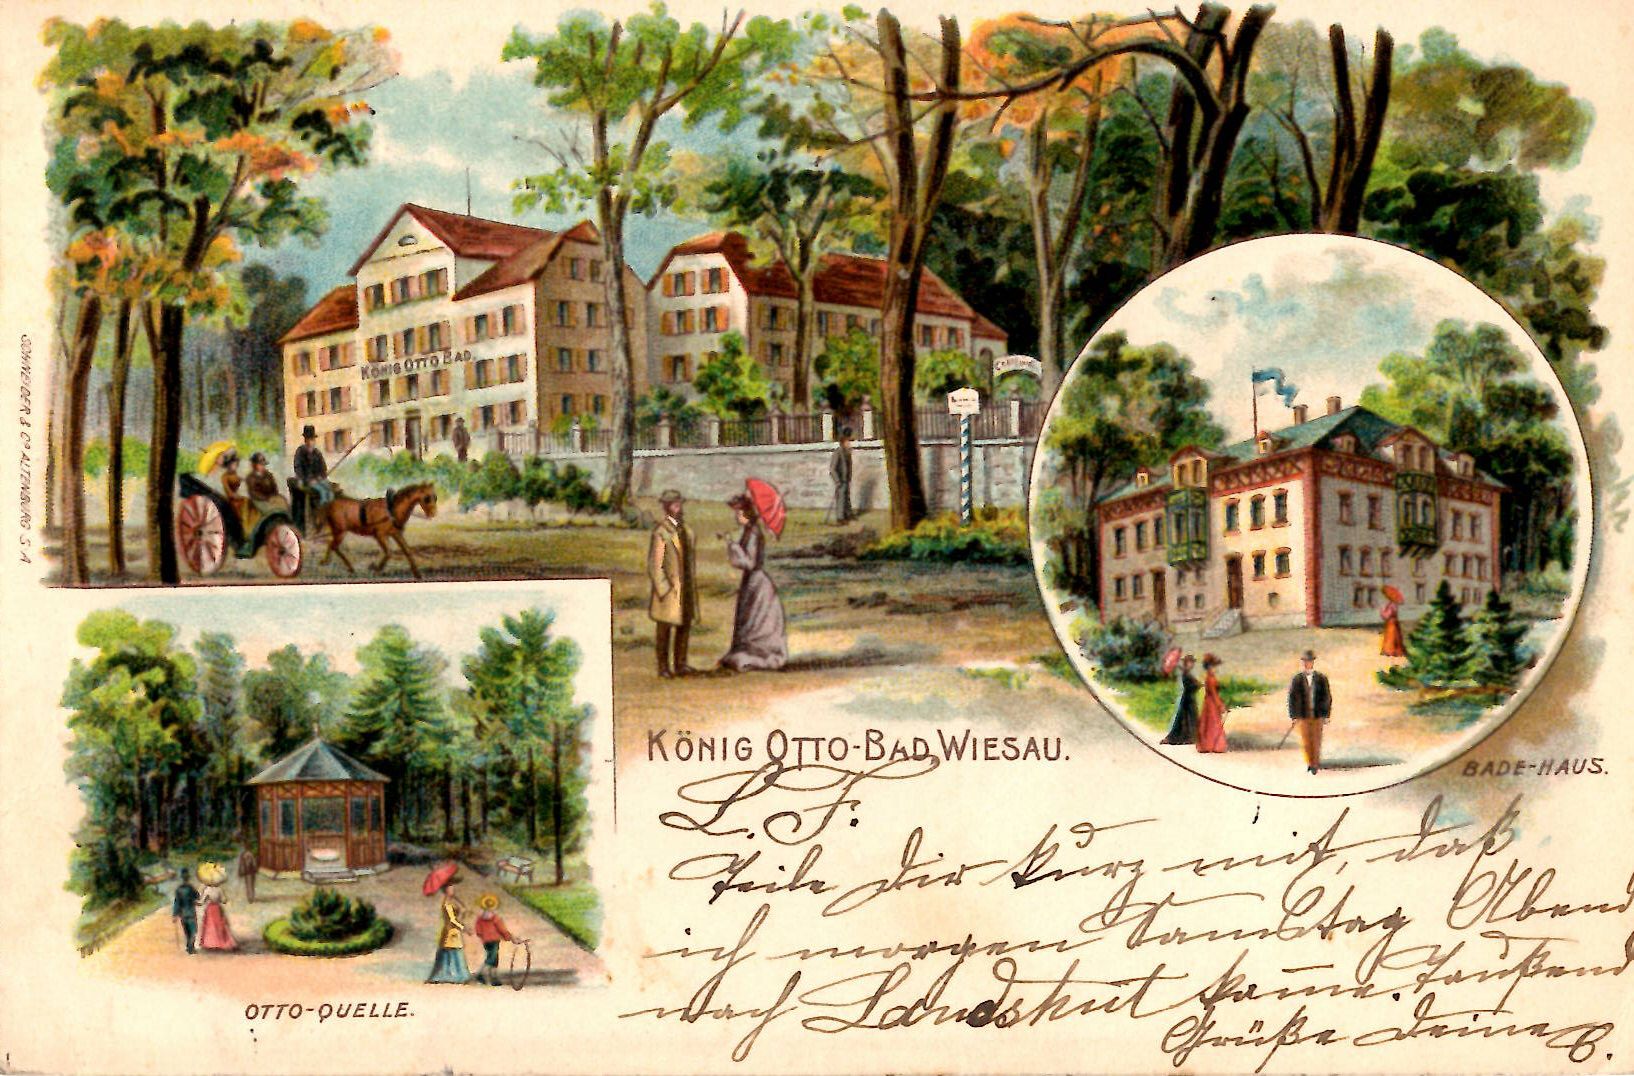 KÖNIG OTTO BAD.
SCHNEIDER & Co ALTENBURG S. A
KÖNIG OTTO-BAD WIESAU.
BADE-HAUS.
OTTO-QUELLE.
L. F.
Teile Dir kurz mit, daß
ich morgen Samstag Abend
nach Landshut komme. Tausend
Grüße Deine B.